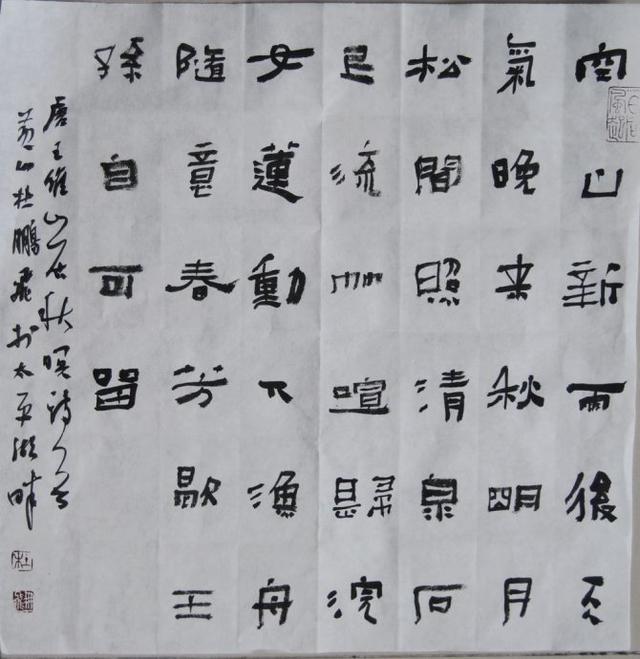 空山新雨後天
氣晚来秋明月
松間照清泉石
上流竹喧歸浣
女蓮動下漁舟
隨意春芳歇王
孫自可留
唐王維山居秋暝詩一首
黄山杜鵬飛於太平湖畔
杜